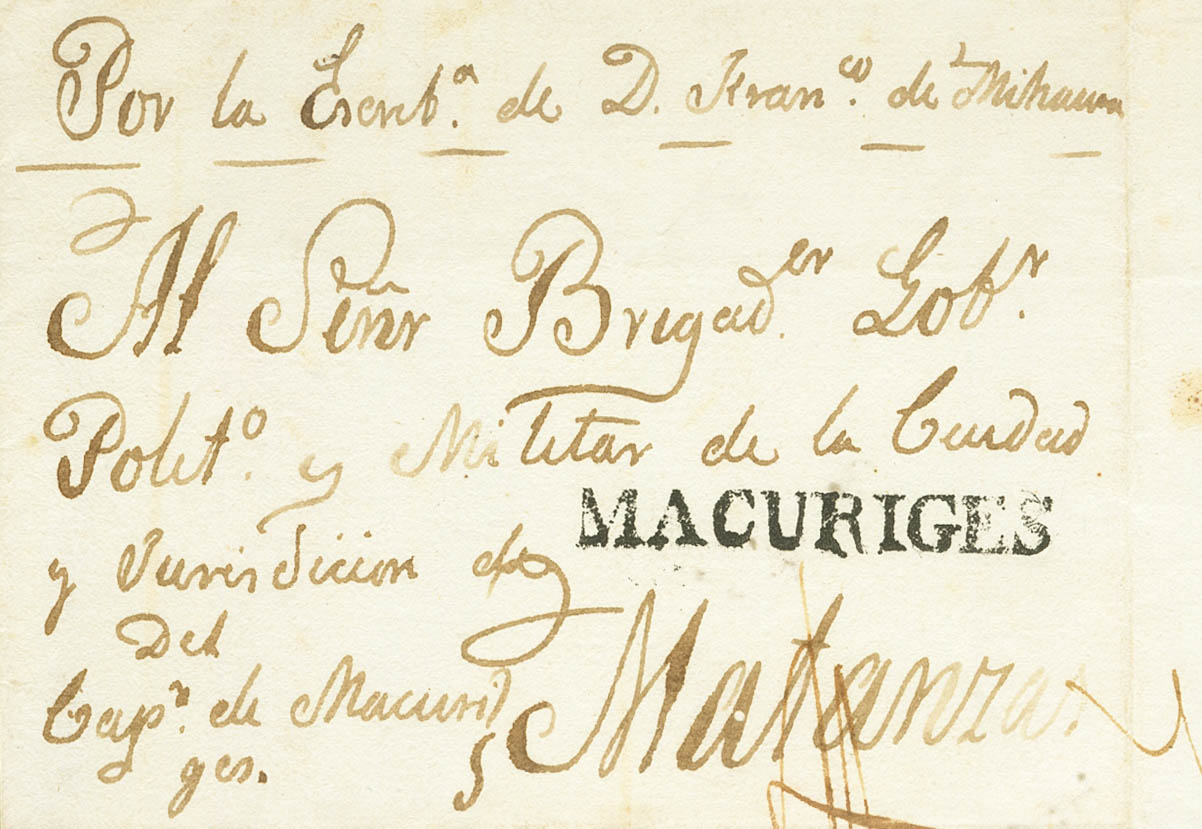 Por la Escrib.ª de D. Fran.co de
Al Señr Brigad.er Gob.r
Polit.o y Militar de la Ciudad
MACURIGES
y Jurisdicion de
Matanzas
Del
Cap.n de Macuri
ges.